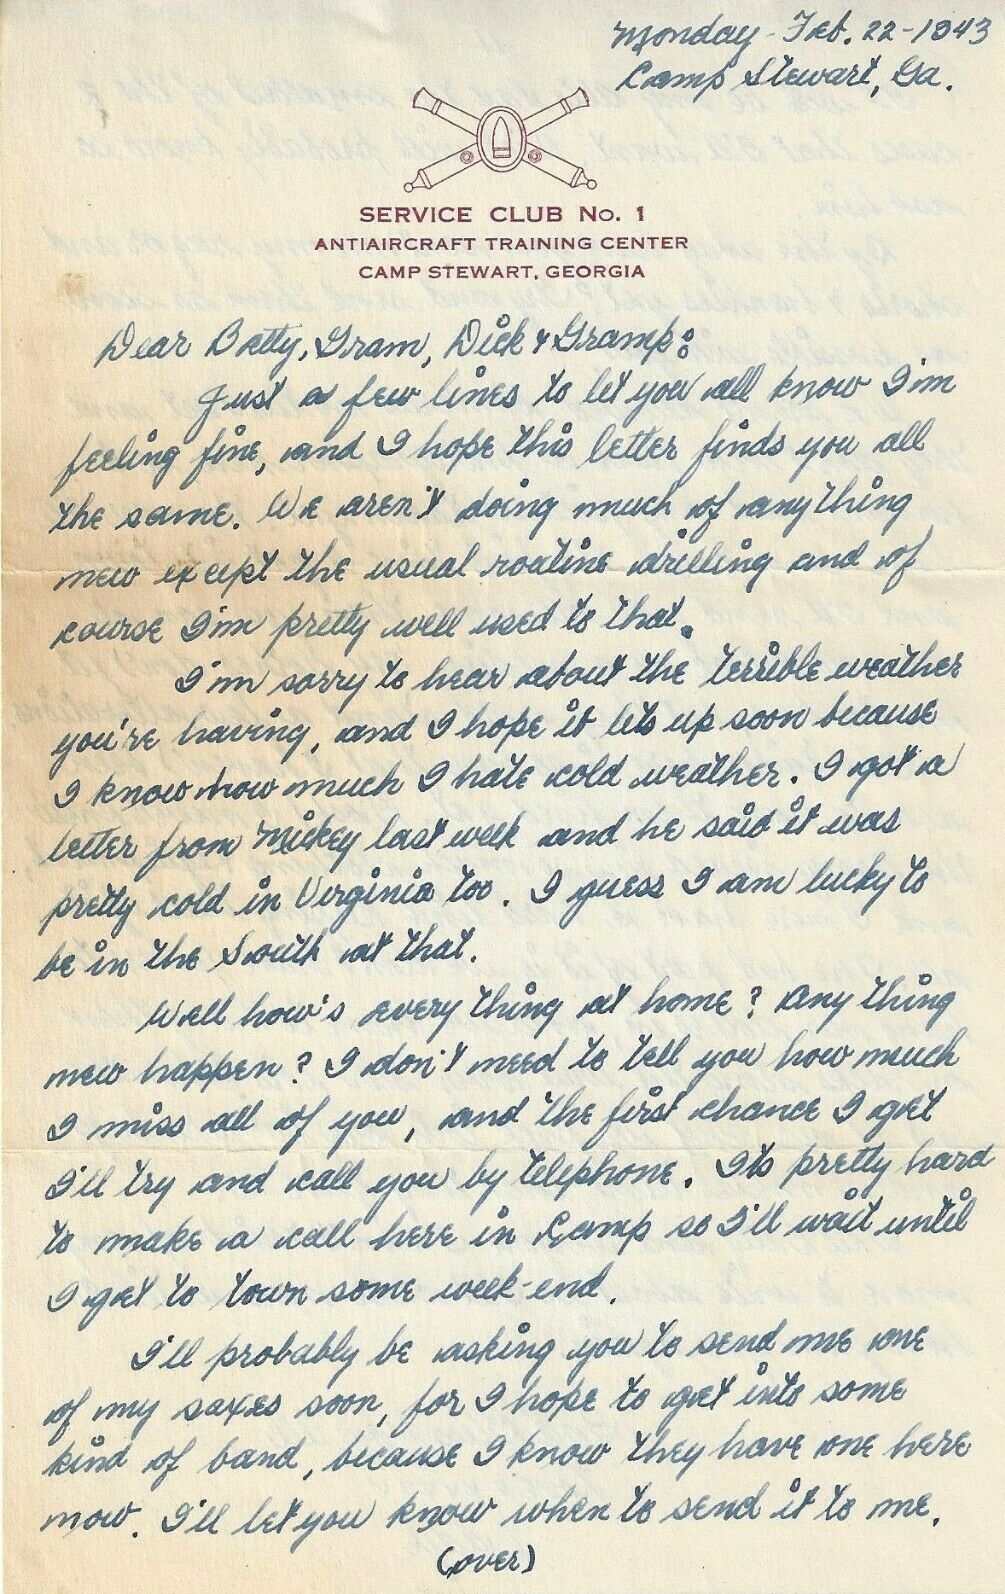 Monday - Feb. 22-1943
Camp Stewart, Ga.
SERVICE CLUB No. 1
ANTIAIRCRAFT TRAINING CENTER
CAMP STEWART, GEORGIA
Dear Betty, Gram, Dick & Gramp:
Just a few lines to let you all know I'm
feeling fine, and I hope this letter finds you all
the same. We aren't doing much of anything
new except the usual routine drilling and of
course I'm pretty well used to that.
I'm sorry to hear about the terrible weather
you're having, and I hope it lets up soon because
I know how much I hate cold weather. I got a
letter from Mickey last week and he said it was
pretty cold in Virginia too. I guess I am lucky to
be in the South at that.
Well how's everything at home? Any thing
new happen? I don't need to tell you how much
I miss all of you, and the first chance I get
I'll try and call you by telephone. Its pretty hard
to make a call here in Camp so I'll wait until
I get to town some week-end.
I'll probably be asking you to send me one
of my saxes soon, for I hope to get into some
kind of band, because I know they have one here
now. I'll let you know when to send it to me.
(over)